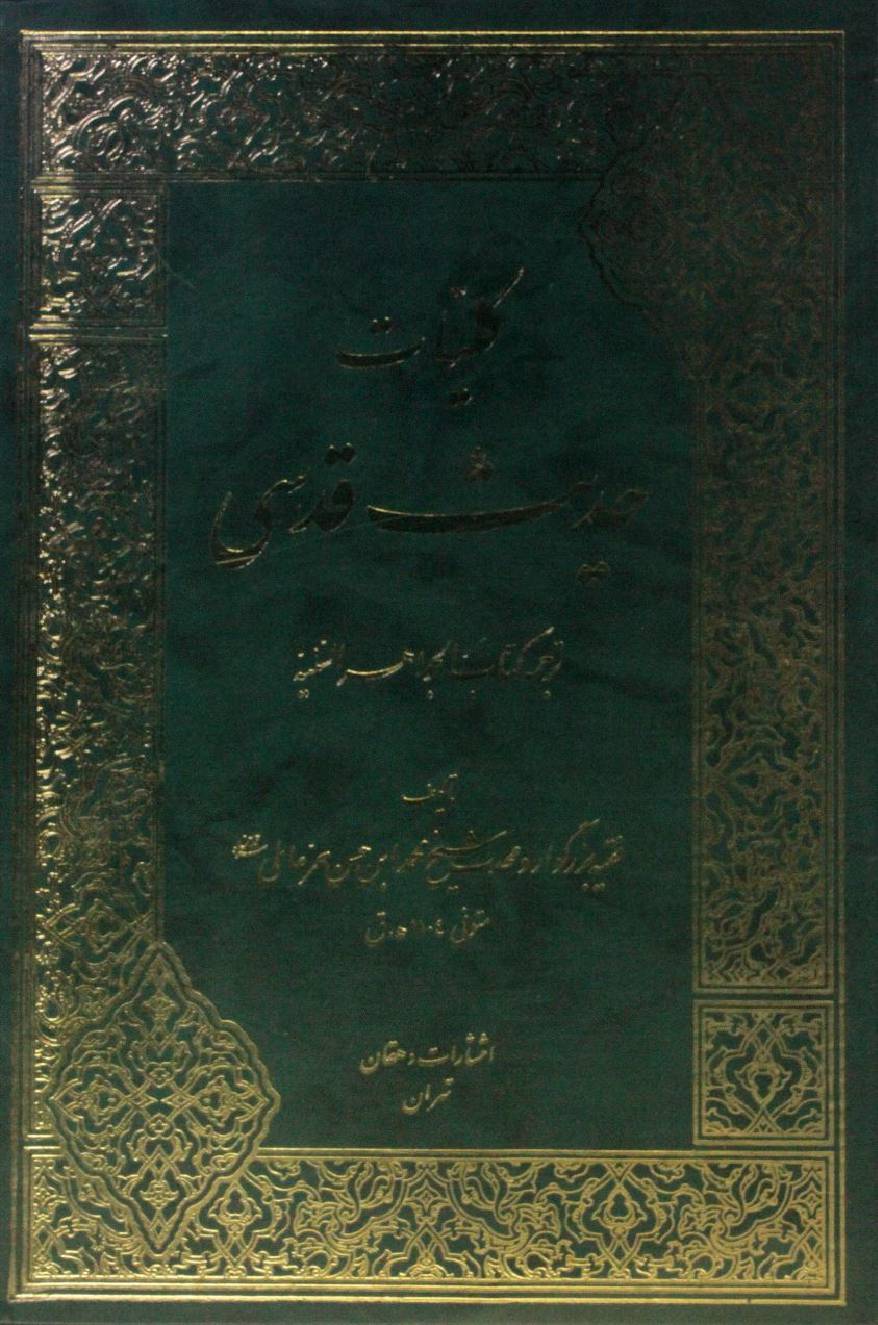 کلیات
حدیث قدسی
ترجمه کتاب الجواهر السنیه
تألیف
فقیه بزرگوار و محدث شیخ محمد ابن حسن حر عاملی
متوفی ۱۱۰٤ ه.ق
انتشارات دهقان
تهران